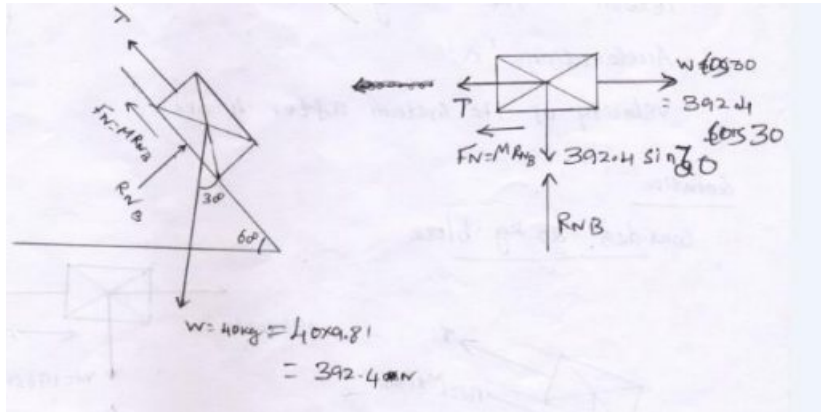 T
FN=MRNB
RNB
30
60°
W=40kg = 40x9.81
= 392.4 N
W cos30
= 392.4
cos 30
T
FN=MRNB
392.4 sin 30
RNB